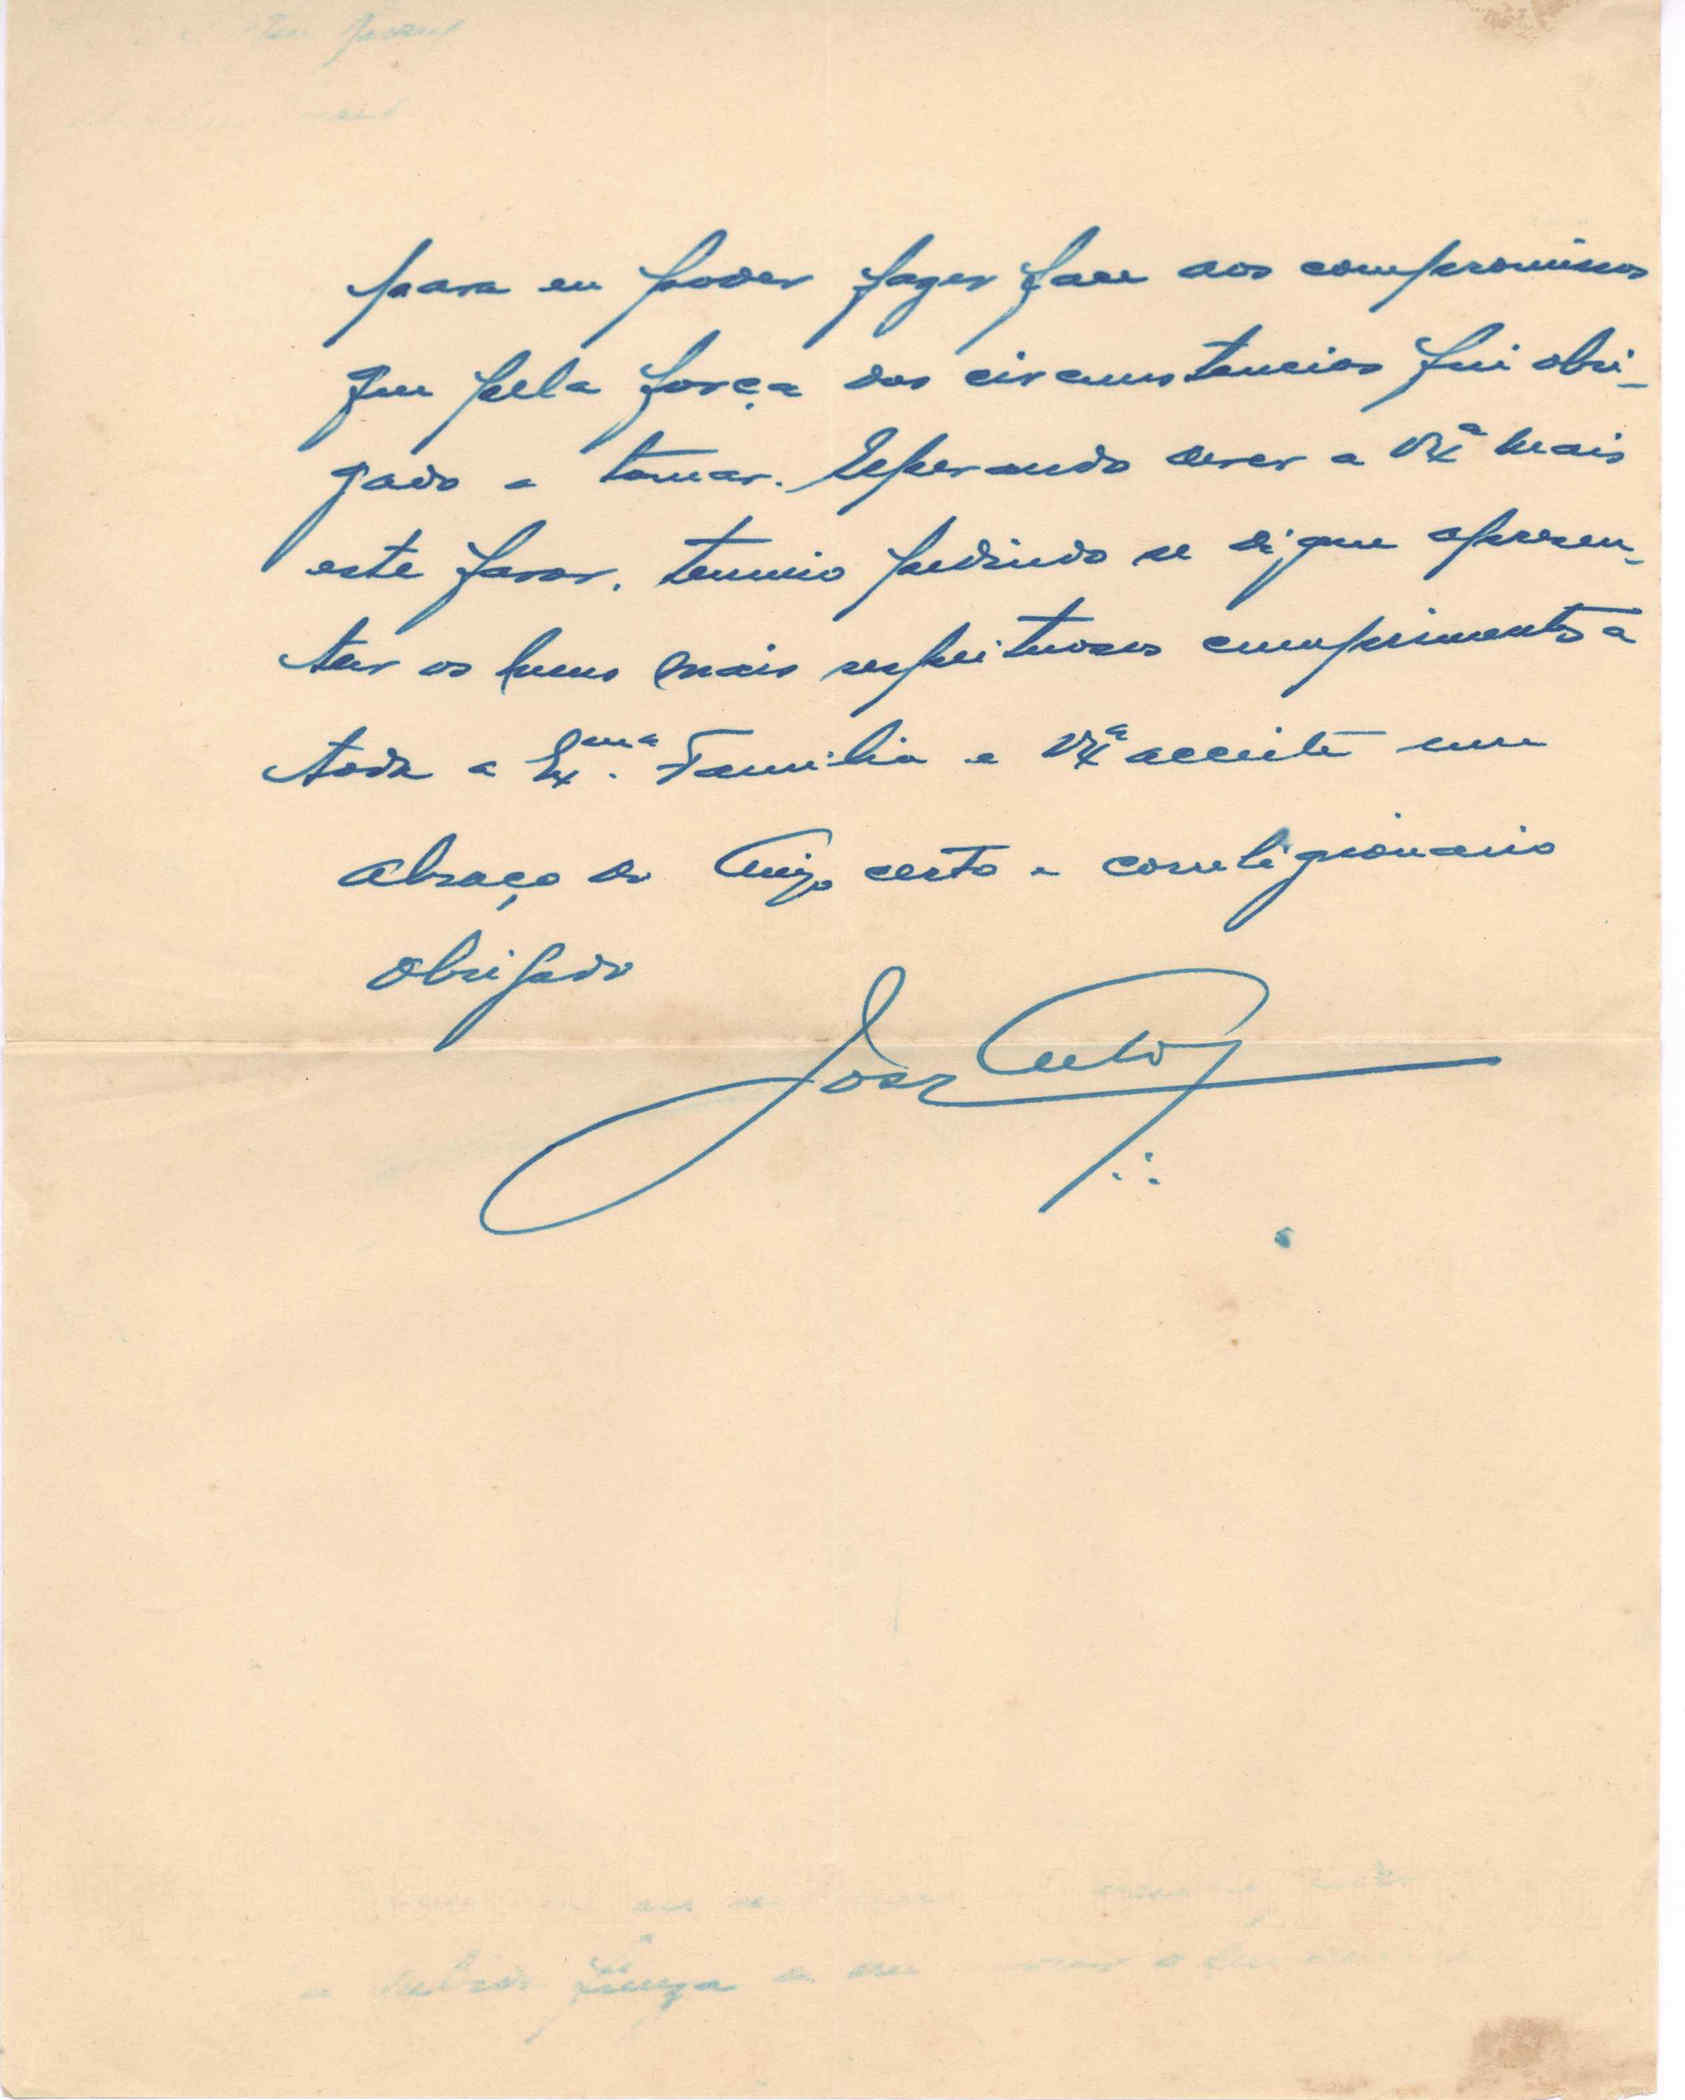 para eu poder fazer face aos compromissos
que pella força das circumstancias fui obri-
gado a tomar. Esperando dever a VExª mais
este favor, termino pedindo se digne apresen-
tar os meus mais respeituosos cumprimentos a
toda a Exmª. Familia e VExª acceite um
abraço do Amigo certo e correligionario
obrigado
José